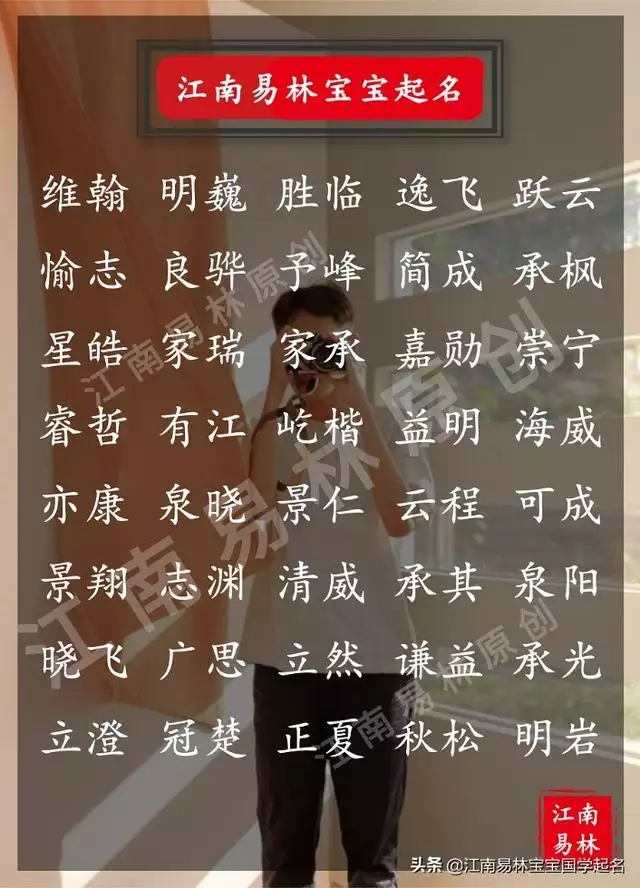 江南易林宝宝起名
维翰 明巍 胜临 逸飞 跃云
愉志 良骅 予峰 简成 承枫
星皓 家瑞 家承 嘉勋 崇宁
睿哲 有江 屹楷 益明 海威
亦康 泉晓 景仁 云程 可成
景翔 志渊 清威 承其 泉阳
晓飞 广思 立然 谦益 承光
立澄 冠楚 正夏 秋松 明岩
江南易林原创
江南易林原创
江南易林原创
江南
易林
头条 @江南易林宝宝国学起名